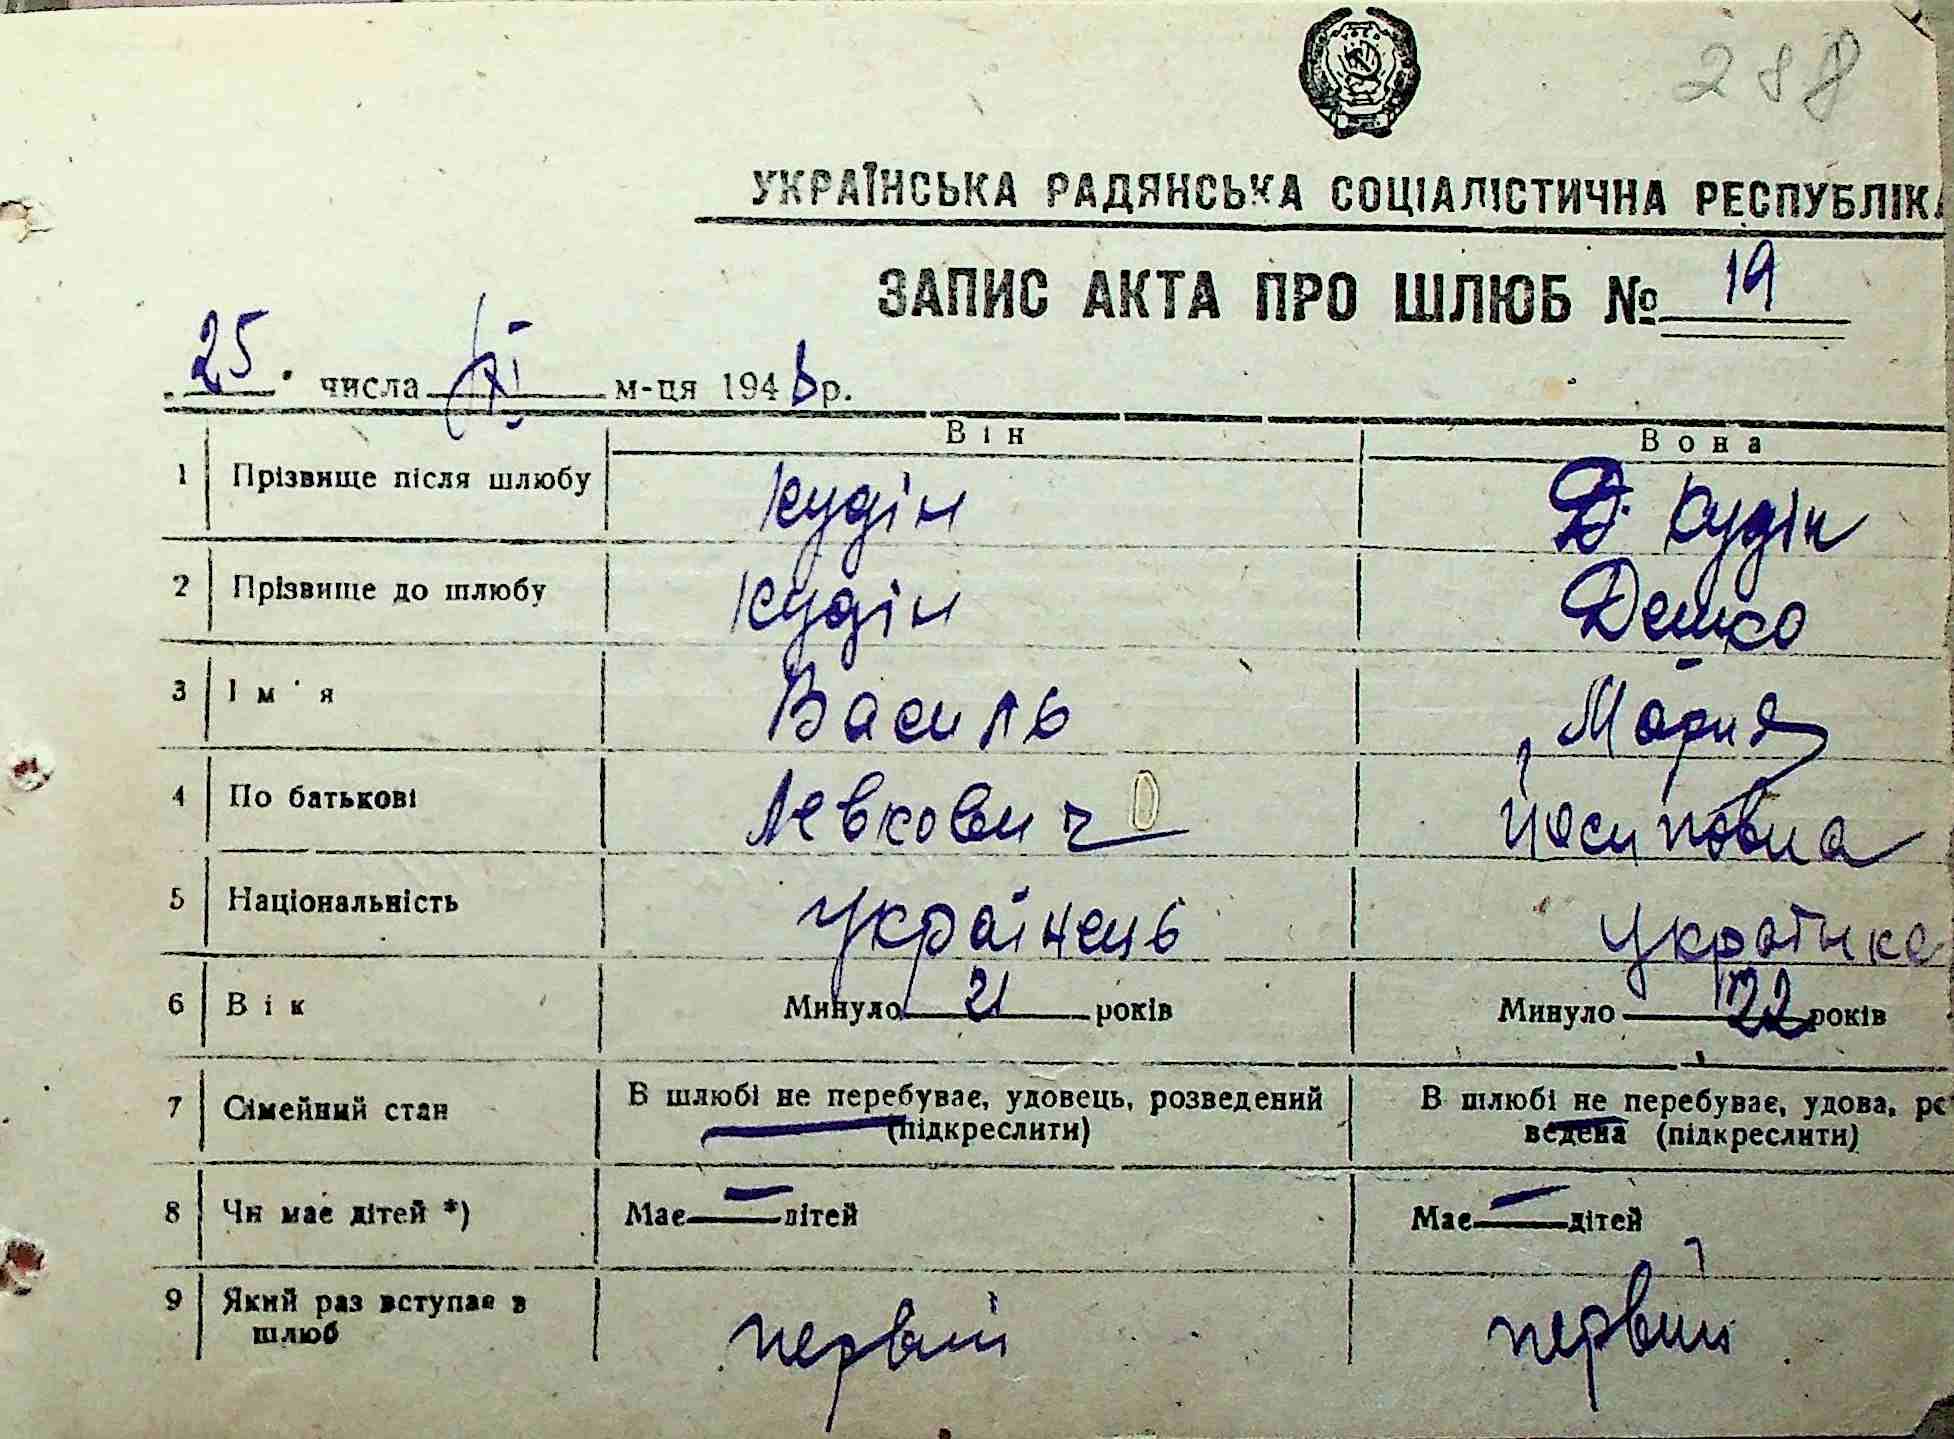 288
УКРАЇНСЬКА РАДЯНСЬКА СОЦІАЛІСТИЧНА РЕСПУБЛІКА
ЗАПИС АКТА ПРО ШЛЮБ № 19
25. числа XI м-ця 1948 р.
Він Вона
1 Прізвище після шлюбу Кудін Д. Кудін
2 Прізвище до шлюбу Кудін Дешко
3 Ім'я Василь Мария
4 По батькові Левкович Йосиповна
5 Національність Українець Українка
6 Вік Минуло 21 років Минуло 22 років
7 Сімейний стан В шлюбі не перебуває, удовець, розведений В шлюбі не перебуває, удова, роз
(підкреслити) ведена (підкреслити)
8 Чи має дітей *) Має — дітей Має — дітей
9 Який раз вступає в
шлюб первий первий